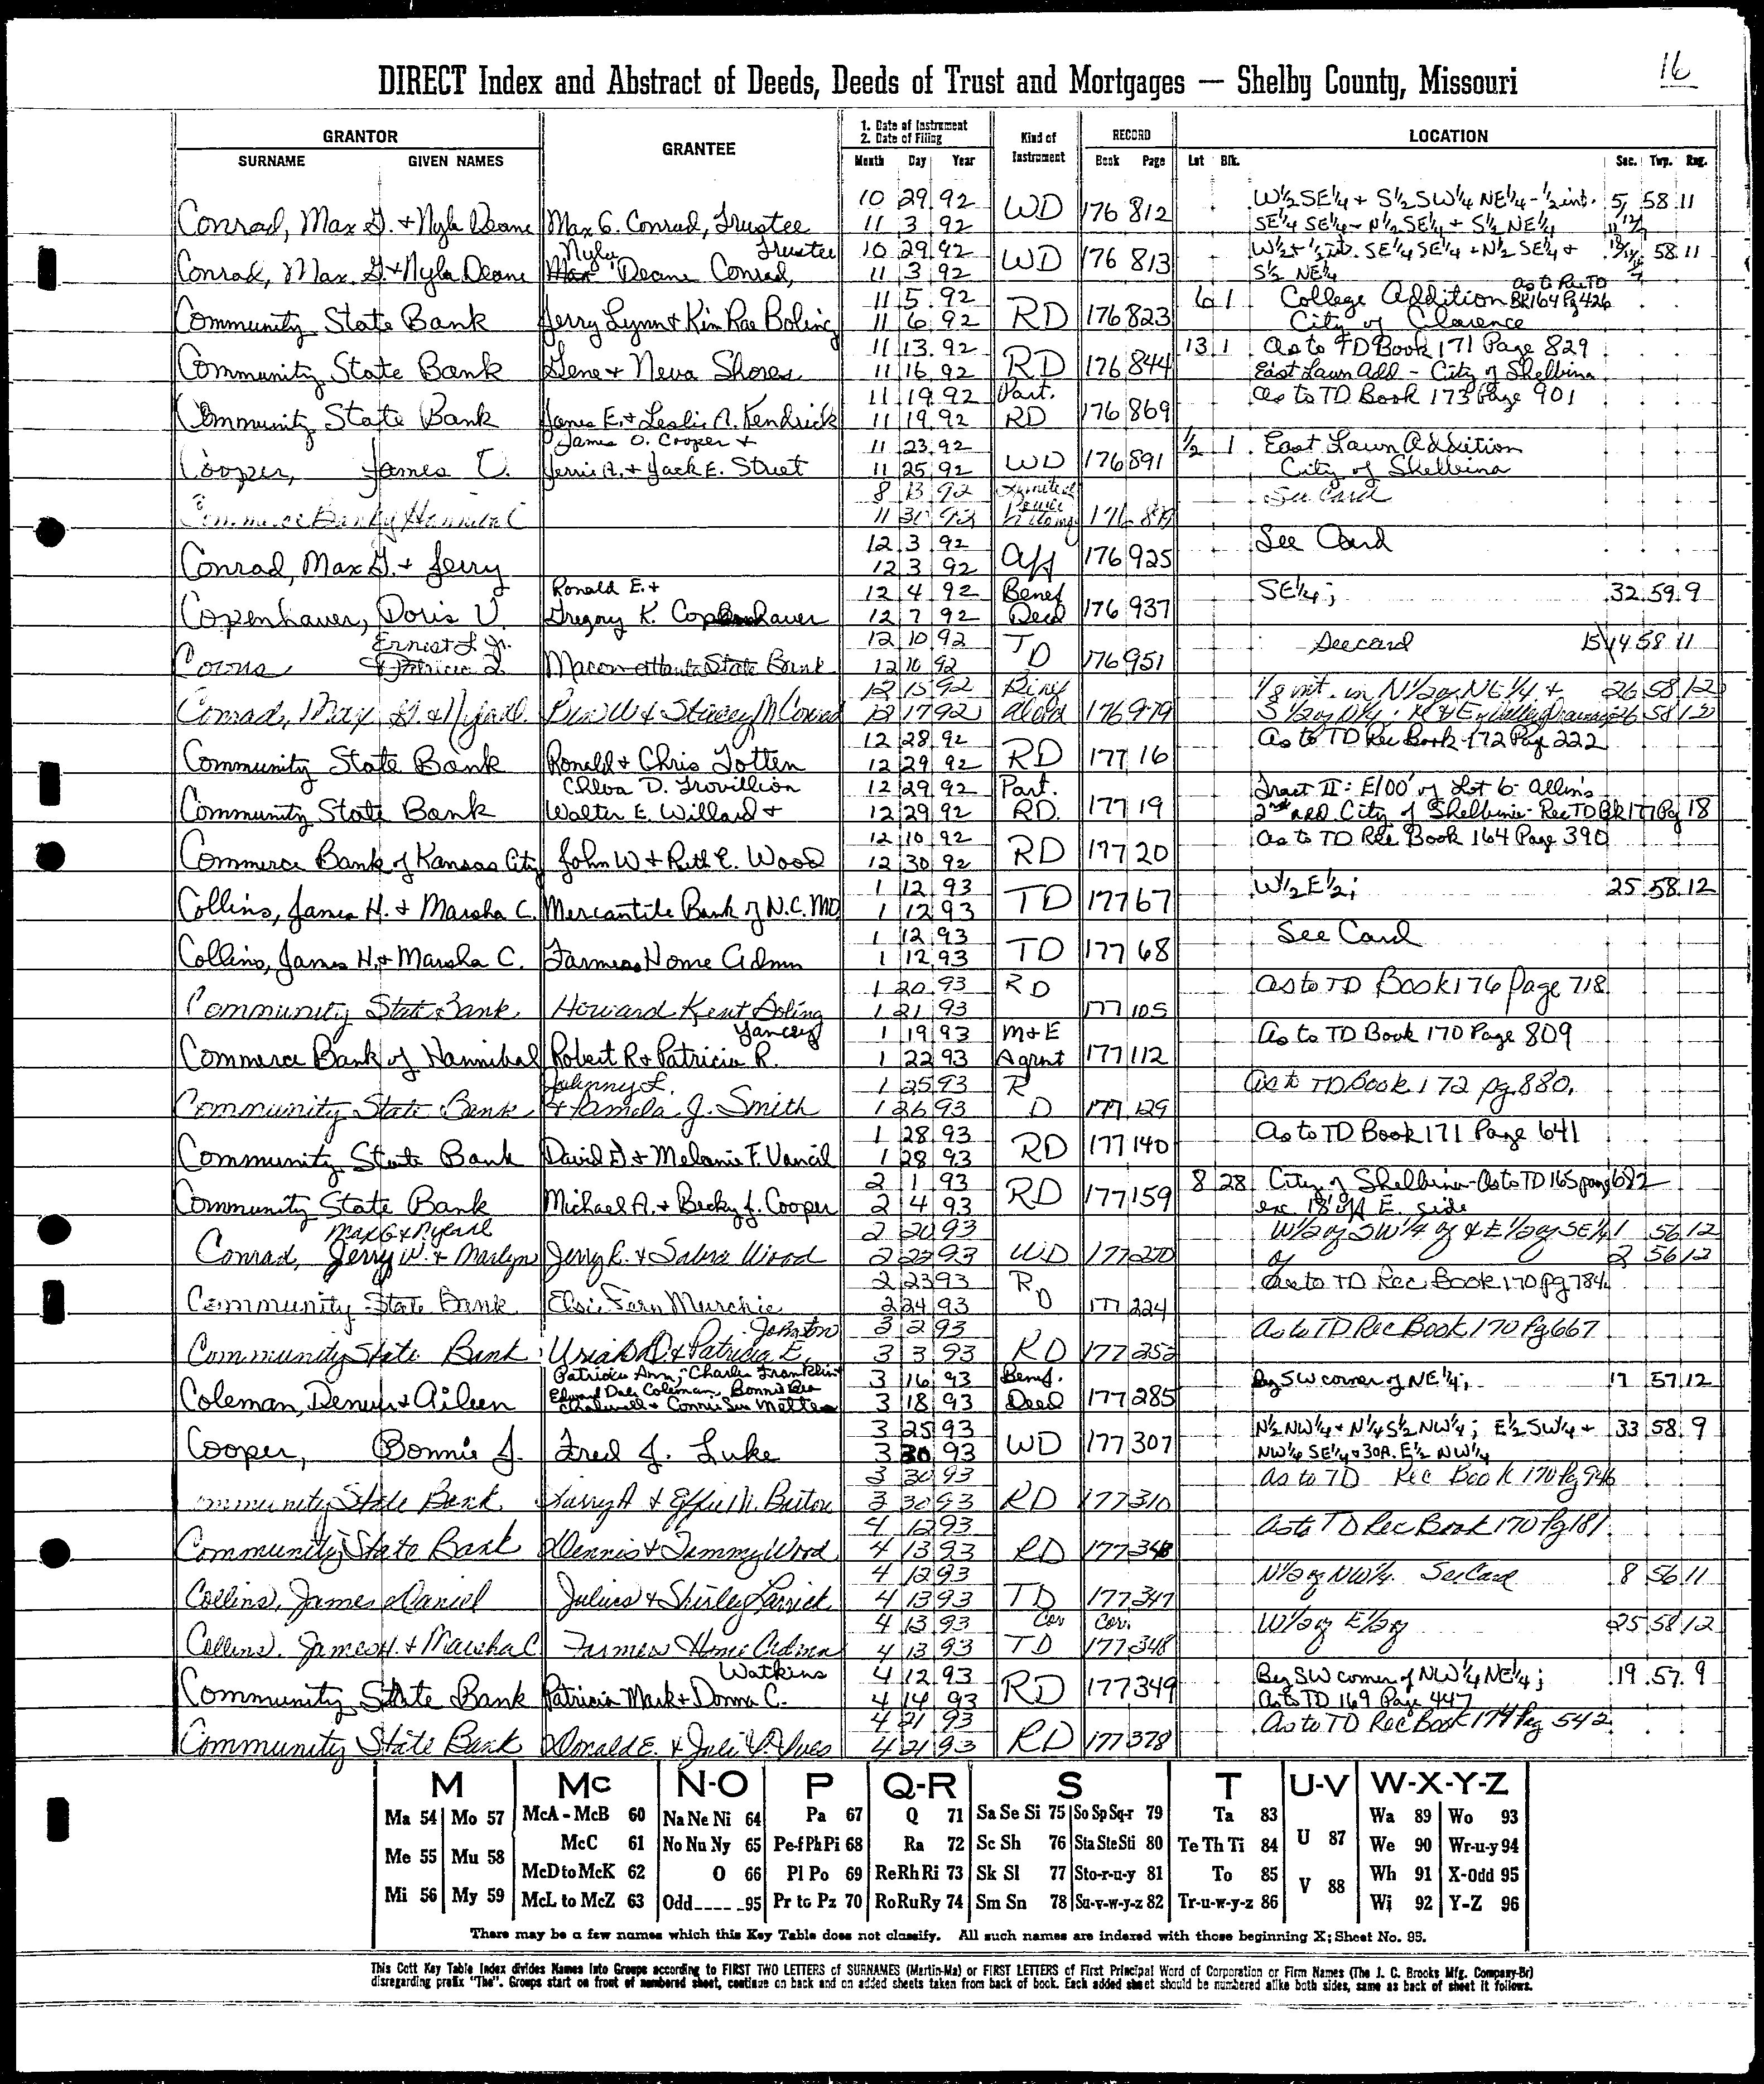 16
DIRECT Index and Abstract of Deeds, Deeds of Trust and Mortgages — Shelby County, Missouri
GRANTOR GRANTEE 1. Date of Instrument 2. Date of Filing Kind of Instrument RECORD LOCATION
SURNAME GIVEN NAMES Month Day Year Book Page Lot Blk. Sec. Twp. Rng.
10 29 92 W½SE¼ + S½SW¼NE¼-½int. 5, 58 11
Conrad, Max G. + Nyla Deane Max G. Conrad, Trustee 11 3 92 WD 176 812 SE¼SE¼-N½SE¼ + S½NE¼
Nyla Trustee 10 29 92 W½+½int. SE¼SE¼+N½SE¼+ 58 11
Conrad, Max G. + Nyla Deane Max Deane Conrad, 11 3 92 WD 176 813 S½ NE¼
11 5 92 6 1 College Addition as to Rec TD BK164 Pg 426
Community State Bank Jerry Lynn + Kim Rae Boling 11 6 92 RD 176 823 City of Clarence
11 13 92 13 1 As to TD Book 171 Page 829
Community State Bank Gene + Neva Shores 11 16 92 RD 176 844 East Lawn Add - City of Shelbina
11 19 92 Part. As to TD Book 173 Page 901
Community State Bank James E. + Leslie A. Kendrick 11 19 92 RD 176 869
James O. Cooper + 11 23 92 ½ 1 East Lawn Addition
Cooper, James O. Jerrie A. + Jack E. Street 11 25 92 WD 176 891 City of Shelbina
8 13 92 Limited See Card
Commerce Bank of Hannibal 11 92 Power Attorney 176
12 3 92 See Card
Conrad, Max G. + Jerry 12 3 92 Aff 176 925
Ronald E. + 12 4 92 Benef SE¼; 32 59 9
Copenhaver, Doris V. Gregory K. Copenhaver 12 7 92 Deed 176 937
Ernest L. Jr. 12 10 92 See card 58 11
+ Patricia L. Macon-Atlanta State Bank 12 10 92 TD 176 951
12 15 92 1/8 int. in N1/2 of NE 1/4 + 26 58 12
Conrad, Max G. + Ben W + Stacey M Conrad 12 17 92 176 979 26 58 12
12 28 92 As to TD Rec Book 172 Page 222
Community State Bank Ronald + Chris Totten 12 29 92 RD 177 16
Chloa D. Trovillion 12 29 92 Part. Tract II: E100' of Lot 6- Allen's
Community State Bank Walter E. Willard + 12 29 92 RD. 177 19 2nd Add City of Shelbina- Rec TD BK 177 Pg 18
12 10 92 As to TD Rec Book 164 Page 390
Commerce Bank of Kansas City John W. + Ruth E. Wood 12 30 92 RD 177 20
1 12 93 W½E½; 25 58 12
Collins, James H. + Marsha C. Mercantile Bank of N.C. MO 1 12 93 TD 177 67
1 12 93 See Card
Collins, James H. + Marsha C. Farmers Home Admn 1 12 93 TD 177 68
1 20 93 RD As to TD Book 176 Page 718
Community State Bank Howard Kent Boling 1 21 93 177 105
Yancey 1 19 93 M+E As to TD Book 170 Page 809
Commerce Bank of Hannibal Robert R + Patricia R. 1 22 93 Agmt 177 112
Johnny L. 1 25 93 R As to TD Book 172 pg. 880.
Community State Bank + Pamela J. Smith 1 26 93 D 177 129
1 28 93 As to TD Book 171 Page 641
Community State Bank David G + Melanie F. Vancil 1 28 93 RD 177 140
2 1 93 8 28 City of Shelbina-As to TD 165 page 682
Community State Bank Michael A. + Becky J. Cooper 2 4 93 RD 177 159 exc 18' off E. side
Max G + 2 20 93 W1/2 of SW1/4 of & E1/2 of SE1/4 1 56 12
Conrad, Jerry W. + Marlyn Jerry R. + Salena Wood 2 22 93 WD 177 of 2 56 12
2 23 93 R As to TD Rec Book 170 pg 784
Community State Bank Elsie Fern Murchie 2 24 93 D 177 224
Johnston 3 2 93 As to TD Rec Book 170 Pg 667
Community State Bank Uriah D. + Patricia E. 3 3 93 RD 177 252
Patricia Ann, Charles Franklin + 3 16 93 Benef. Beg SW corner of NE¼; 17 57 12
Coleman, Denver + Aileen Edward Dale Coleman, Bonnie + Connie Sue 3 18 93 Deed 177 285
3 25 93 N½NW¼ + N¼S½NW¼; E½SW¼ + 33 58 9
Cooper, Bonnie J. Fred J. Luke 3 30 93 WD 177 307 NW¼ SE¼ + 30A. E½ NW¼
3 30 93 As to TD Rec Book 170 Pg 946
Community State Bank Larry A + Effie M. Buton 3 30 93 RD 177 310
4 12 93 As to TD Rec Book 170 Pg 181
Community State Bank Dennis + Tammy Wood 4 13 93 RD 177
4 12 93 N1/2 of NW1/4. See Card 8 56 11
Collins, James Daniel Julius + Shirley Larrick 4 13 93 TD 177 347
4 13 93 Cor Cor. W1/2 of E1/2 of 25 58 12
Collins, James H. + Marsha C Farmers Home Admn 4 13 93 TD 177 348
Watkins 4 12 93 Beg SW corner of NW¼NE¼; 19 57 9
Community State Bank Patricia Mark + Donna C. 4 14 93 RD 177 349 As to TD 169 Page 447
4 21 93 As to TD Rec Book 174 Pg 542
Community State Bank Donald E. + Juli 4 21 93 RD 177 378
M Mc N-O P Q-R S T U-V W-X-Y-Z
Ma 54 Mo 57 McA - McB 60 Na Ne Ni 64 Pa 67 Q 71 Sa Se Si 75 So Sp Sq-r 79 Ta 83 U 87 Wa 89 Wo 93
Me 55 Mu 58 McC 61 No Nu Ny 65 Pe-f Ph Pi 68 Ra 72 Sc Sh 76 Sta Ste Sti 80 Te Th Ti 84 We 90 Wr-u-y 94
McD to McK 62 O 66 Pl Po 69 Re Rh Ri 73 Sk Sl 77 Sto-r-u-y 81 To 85 V 88 Wh 91 X-Odd 95
Mi 56 My 59 McL to McZ 63 Odd 95 Pr to Pz 70 Ro Ru Ry 74 Sm Sn 78 Su-v-w-y-z 82 Tr-u-w-y-z 86 Wi 92 Y-Z 96
There may be a few names which this Key Table does not classify. All such names are indexed with those beginning X; Sheet No. 95.
This Cott Key Table Index divides Names Into Groups according to FIRST TWO LETTERS of SURNAMES (Martin-Ma) or FIRST LETTERS of First Principal Word of Corporation or Firm Names (The J. C. Brooks Mfg. Company-Br)
disregarding prefix "The". Groups start on front of numbered sheet, continue on back and on added sheets taken from back of book. Each added sheet should be numbered alike both sides, same as back of sheet it follows.